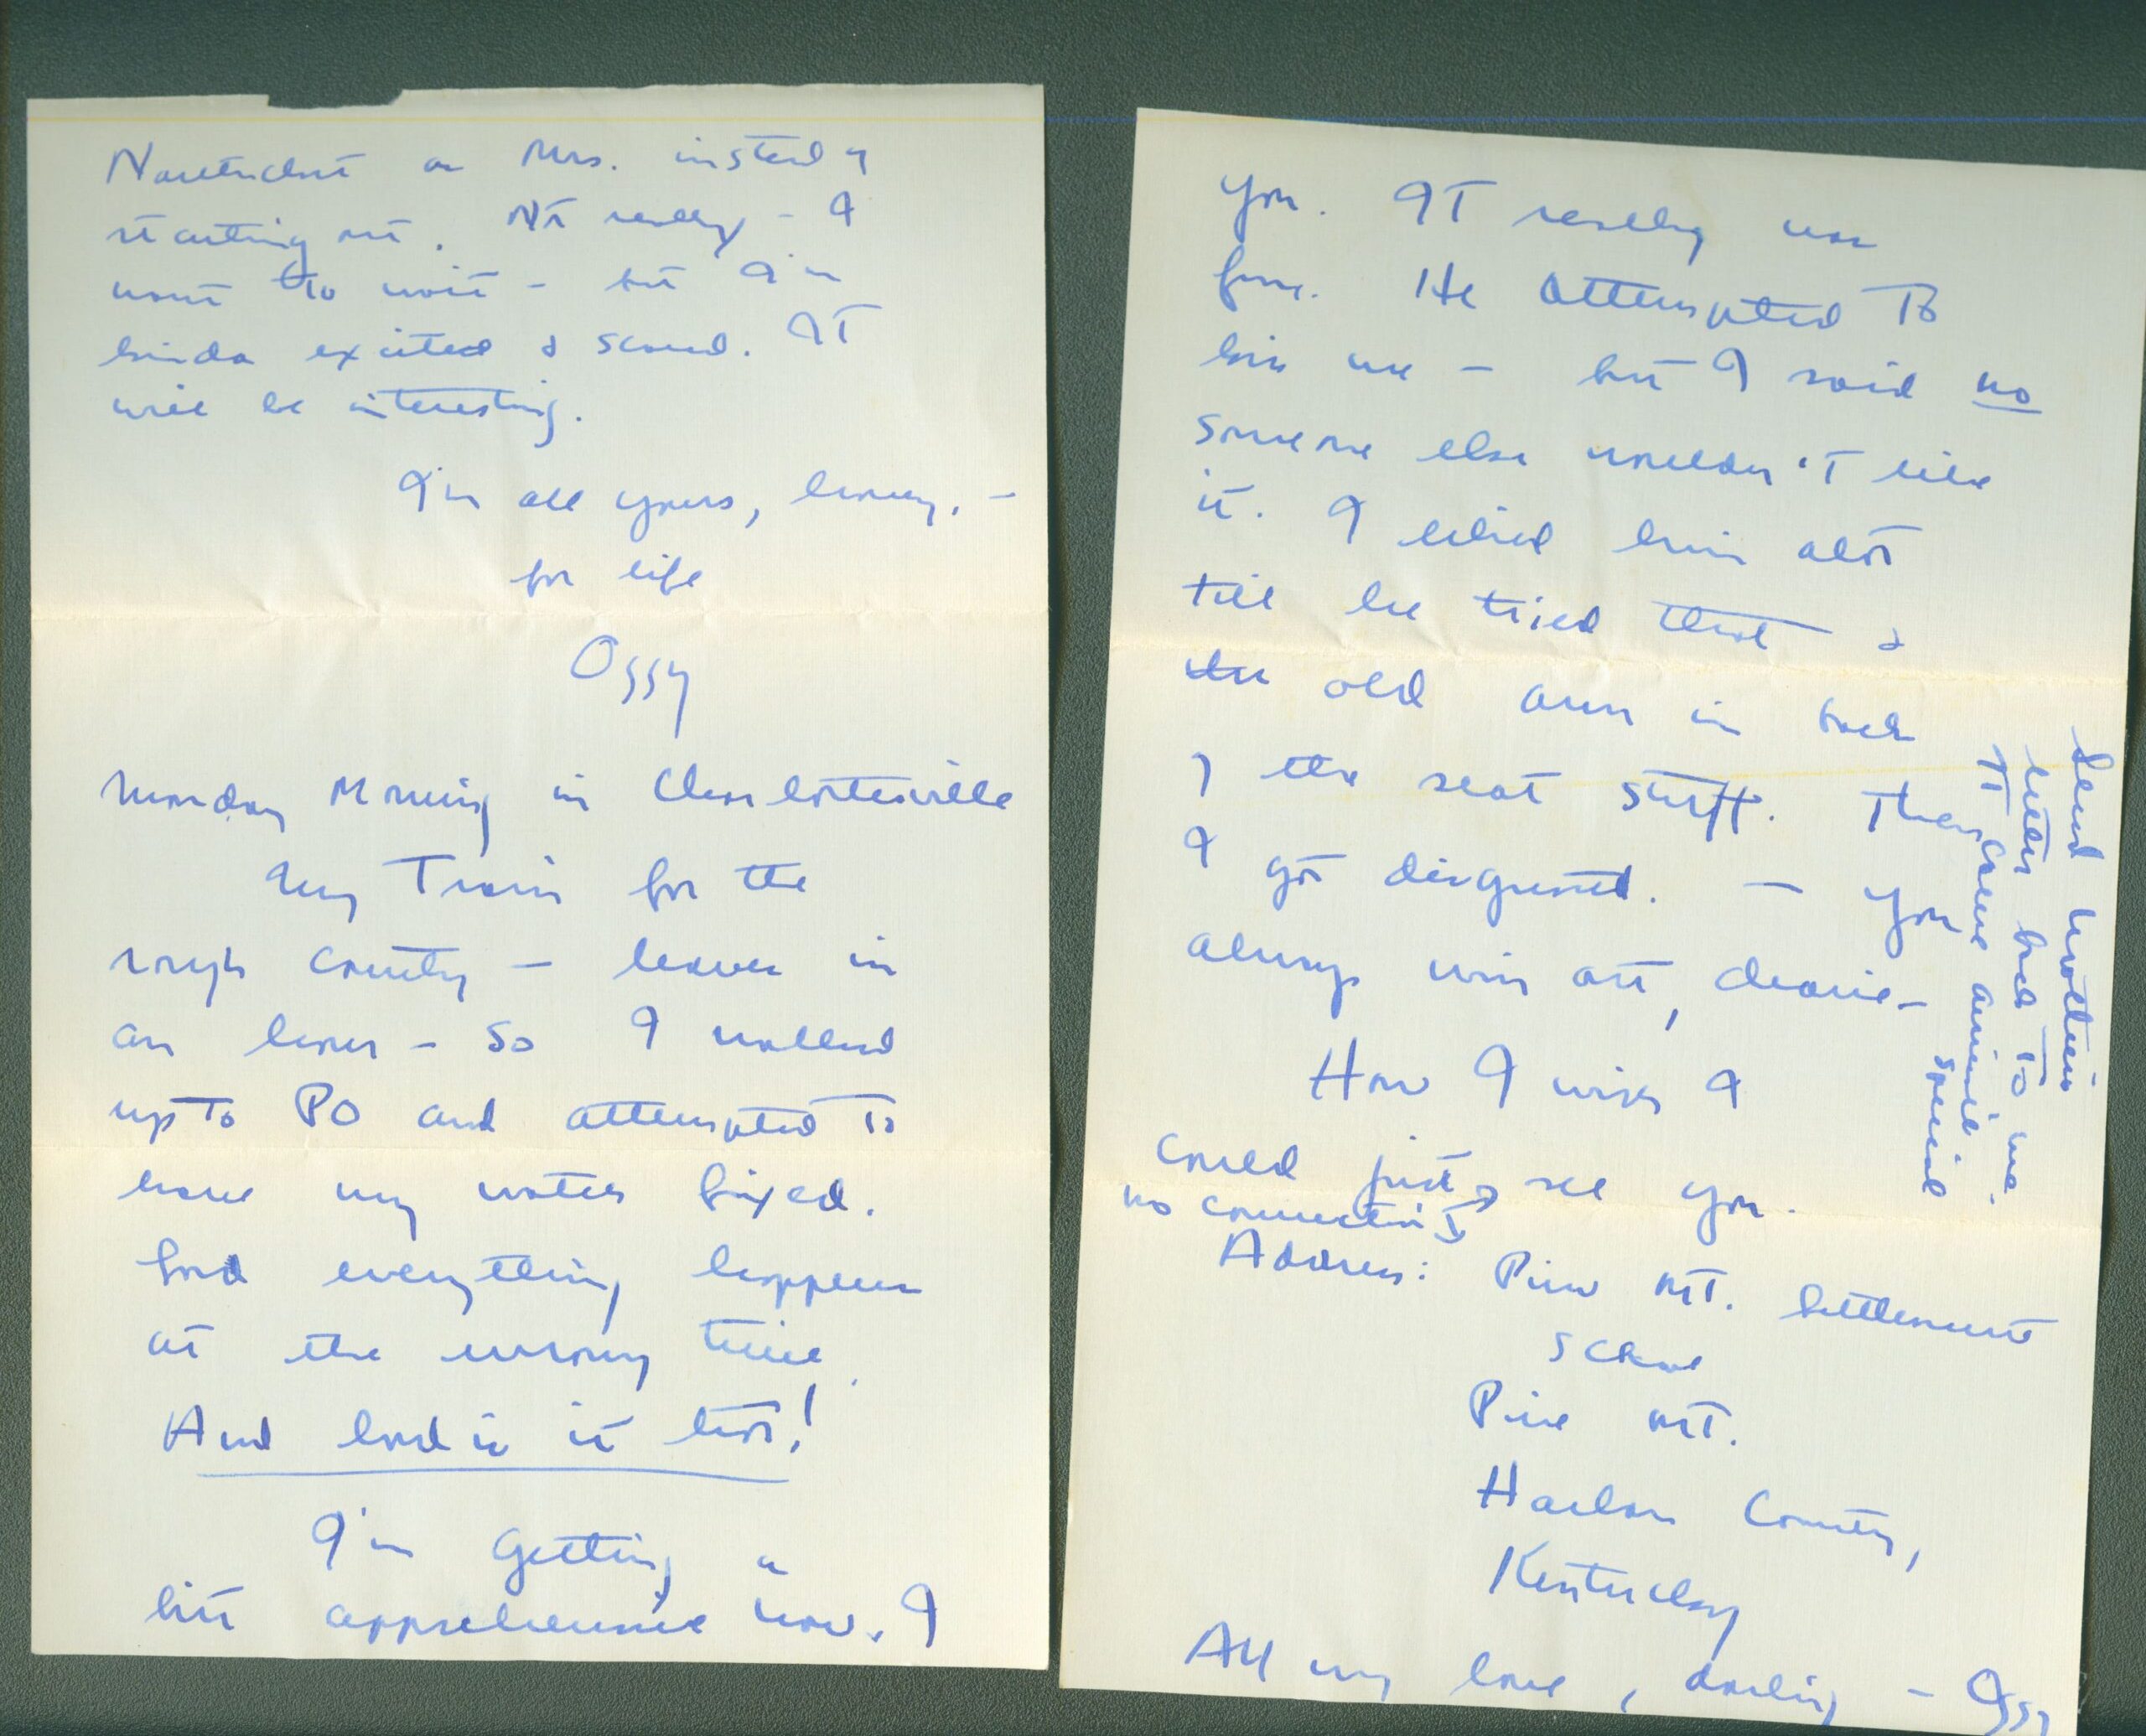 Nantucket as Mrs. instead of
starting out. Not really - I
want to wait - but I'm
kinda excited & scared. It
will be interesting.
I'm all yours, honey, -
for life
Ossy
Monday Morning in Charlottesville
My Train for the
rough country - leaves in
an hour - so I walked
up to PO and attempted to
have my watch fixed.
Lord everything happens
at the wrong time.
And lord is it hot!
I'm getting a
bit apprehensive now. I
you. It really was
fun. He attempted to
kiss me - but I said no
someone else wouldn't like
it. I liked him alot
till he tried that &
the old arm in back
of the seat stuff. Then
I got disgusted. - You
always win out, dearie -
How I wish I
could just see you.
no connection
Address: Pine Mt. Settlement
School
Pine Mt.
Harlan County,
Kentucky
All my love, darling - Ossy
Send Mother's
letter back to me.
It came airmail
special